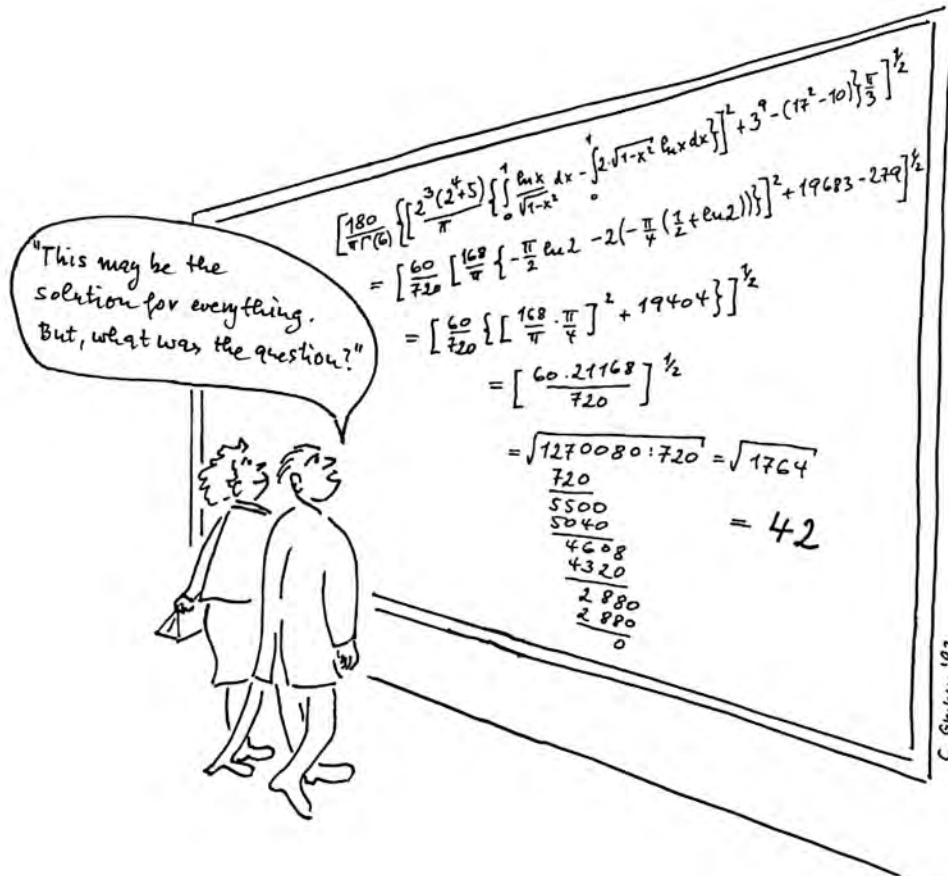 "This may be the
solution for everything.
But, what was the question?"
[180/(πΓ(6)) {[2³(2⁴+5)/π {∫₀¹ ln x/√(1-x²) dx - ∫₀¹ 2·√(1-x²) ln x dx}]² + 3⁹ - (17²-10)} π/3]^½
= [60/720 [168/π {-π/2 ln 2 - 2(-π/4 (1/2 + ln 2))}]² + 19683 - 279]^½
= [60/720 {[168/π · π/4]² + 19404}]^½
= [60·21168/720]^½
= √(1270080:720) = √1764
720
5500
5040
4608
4320
2880
2880
0
= 42